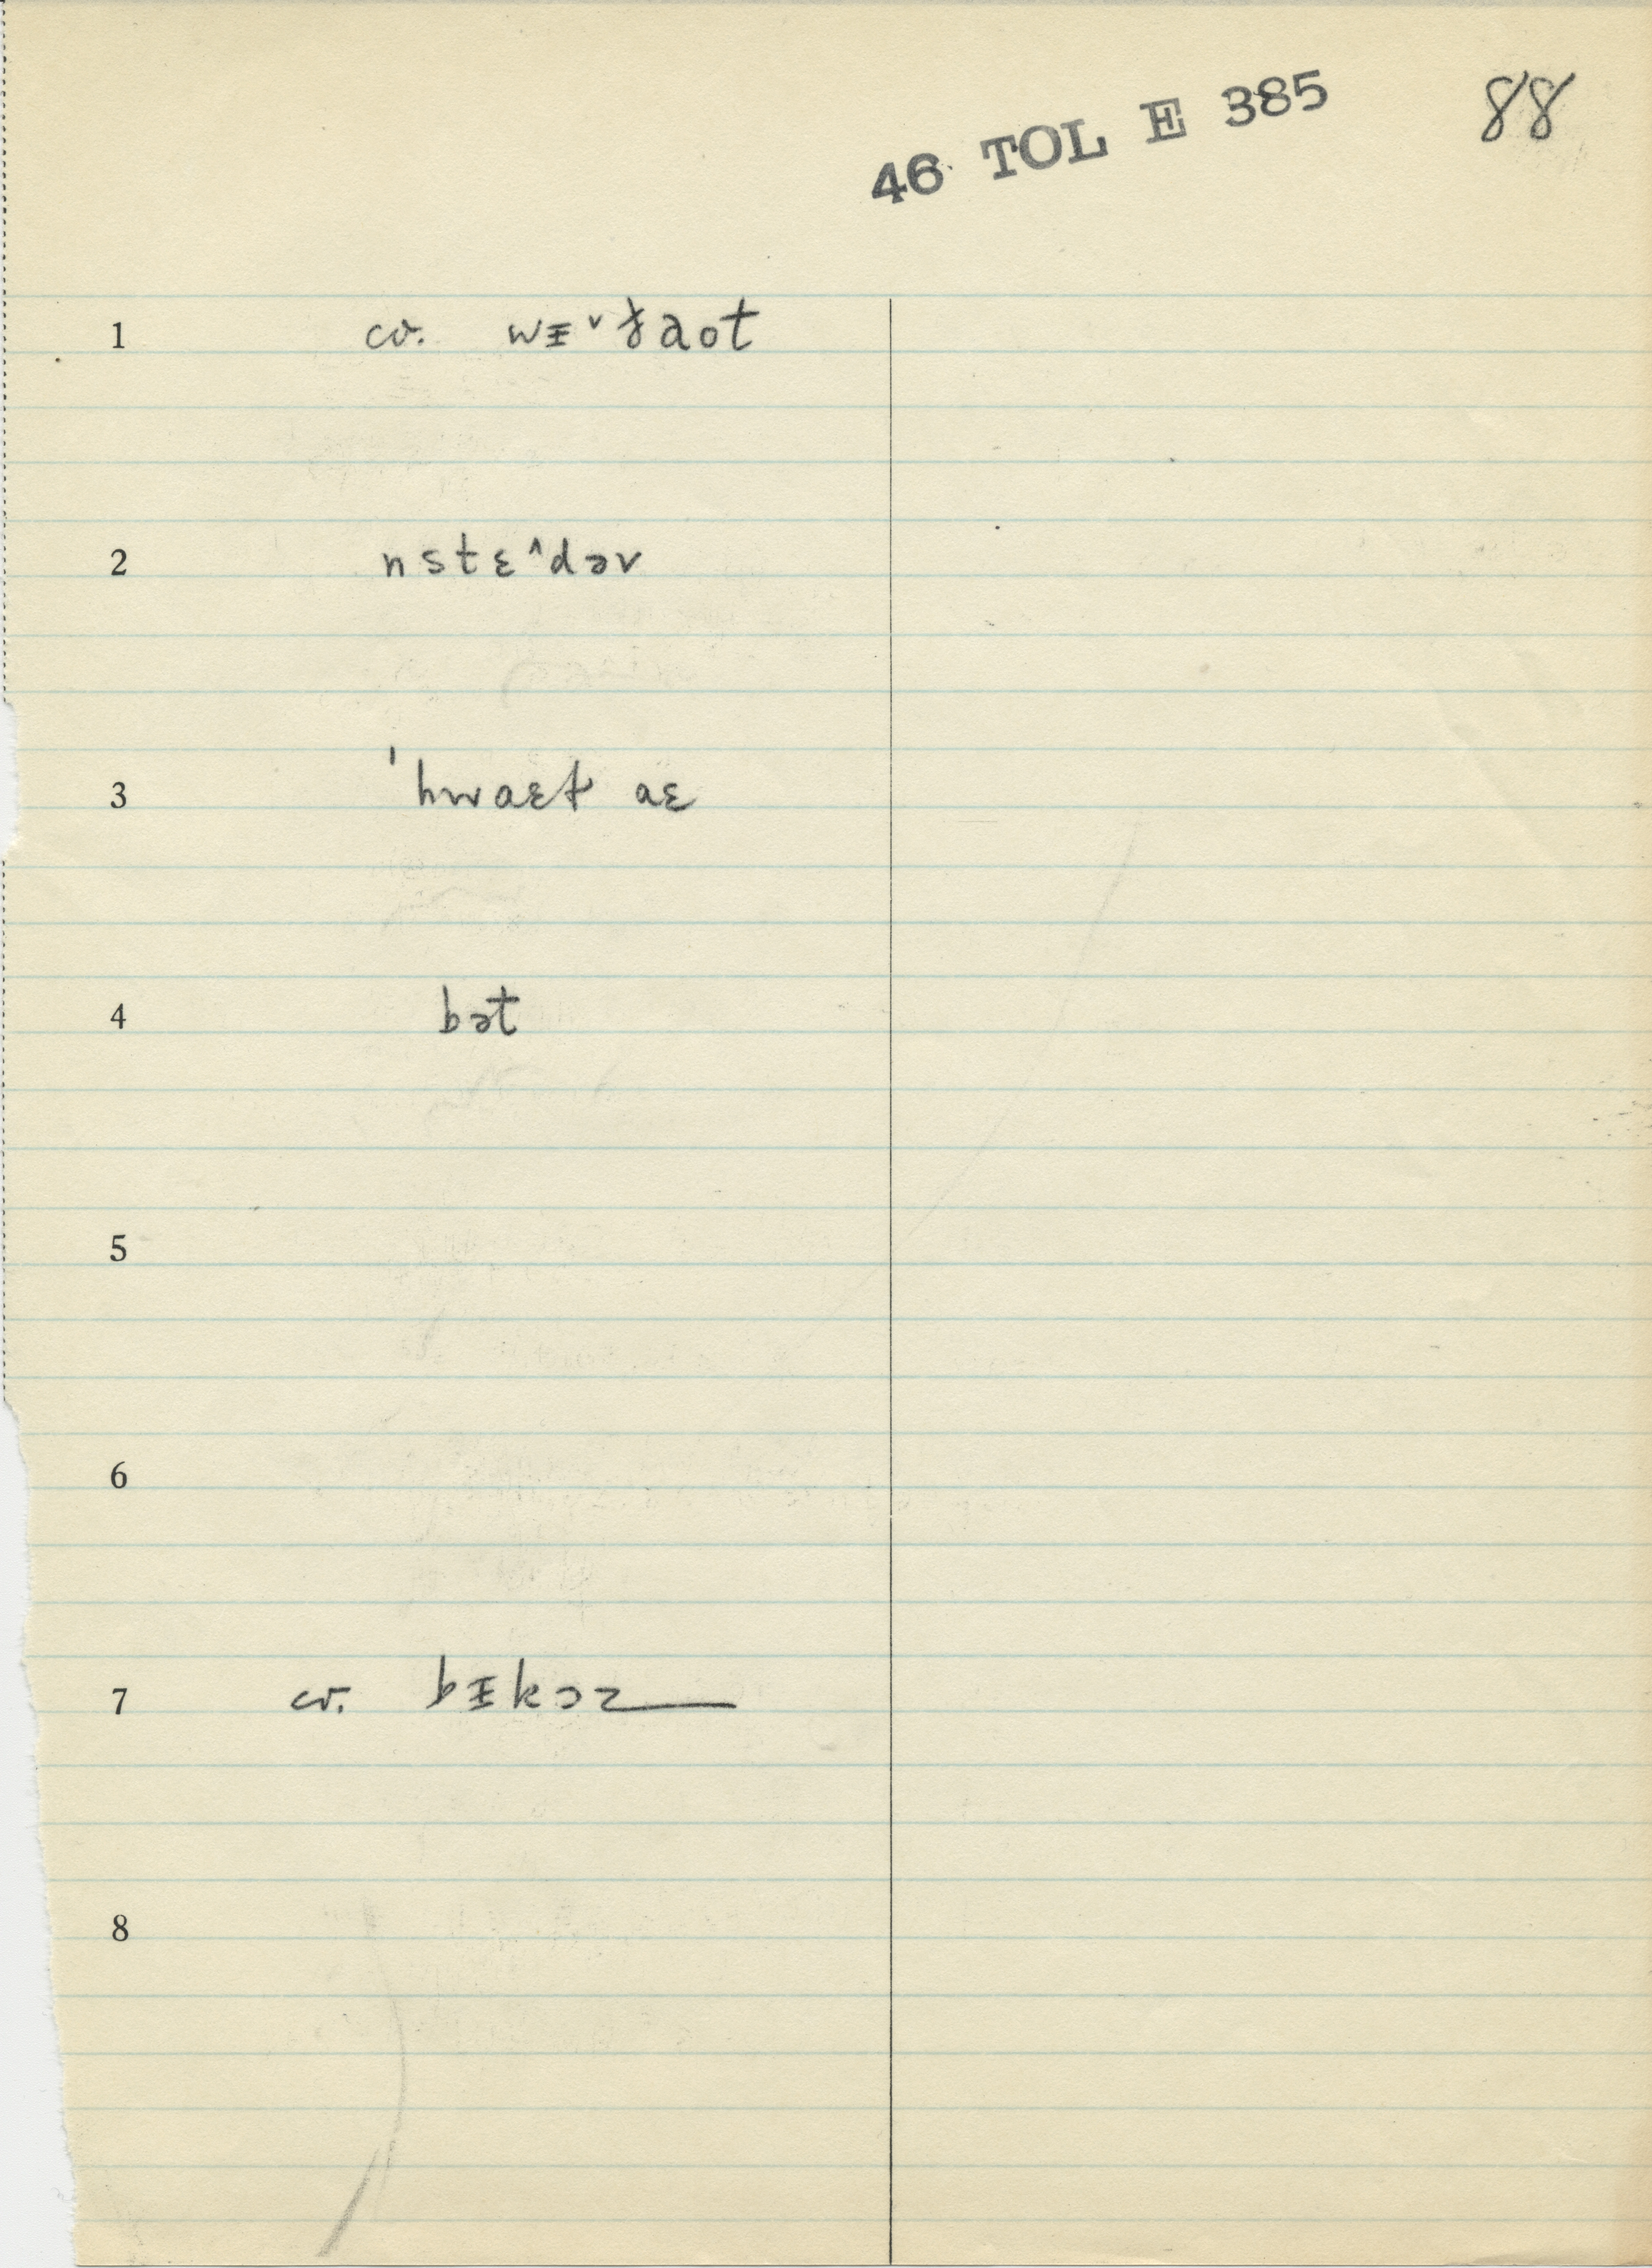 46 TOL E 385 88
1 cv. wᵻˇɟaot
2 nstɛ^dəv
3 ˈhwaɛt aɛ
4 bət
5
6
7 cv. bᵻkɔz
8